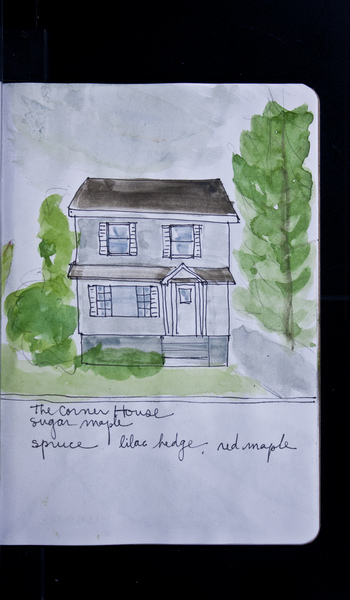 The Corner House
sugar maple
spruce lilac hedge, red maple